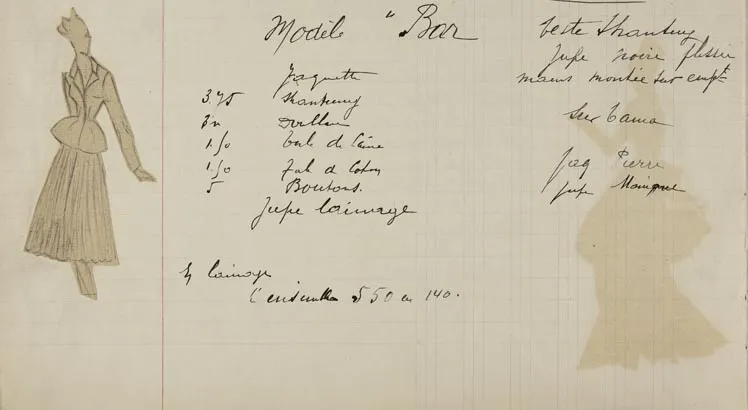 Modèle "Bar
Jaquette
3.75 Shantung
3m Doublure
1.50 toile de laine
1.50 toile de coton
5 Boutons.
Jupe lainage
lainage
l'ensemble 550 en 140.
Veste Shantung
Jupe noire plissée
mains montée sur empt
sur
Jaq Pierre
jupe Monique